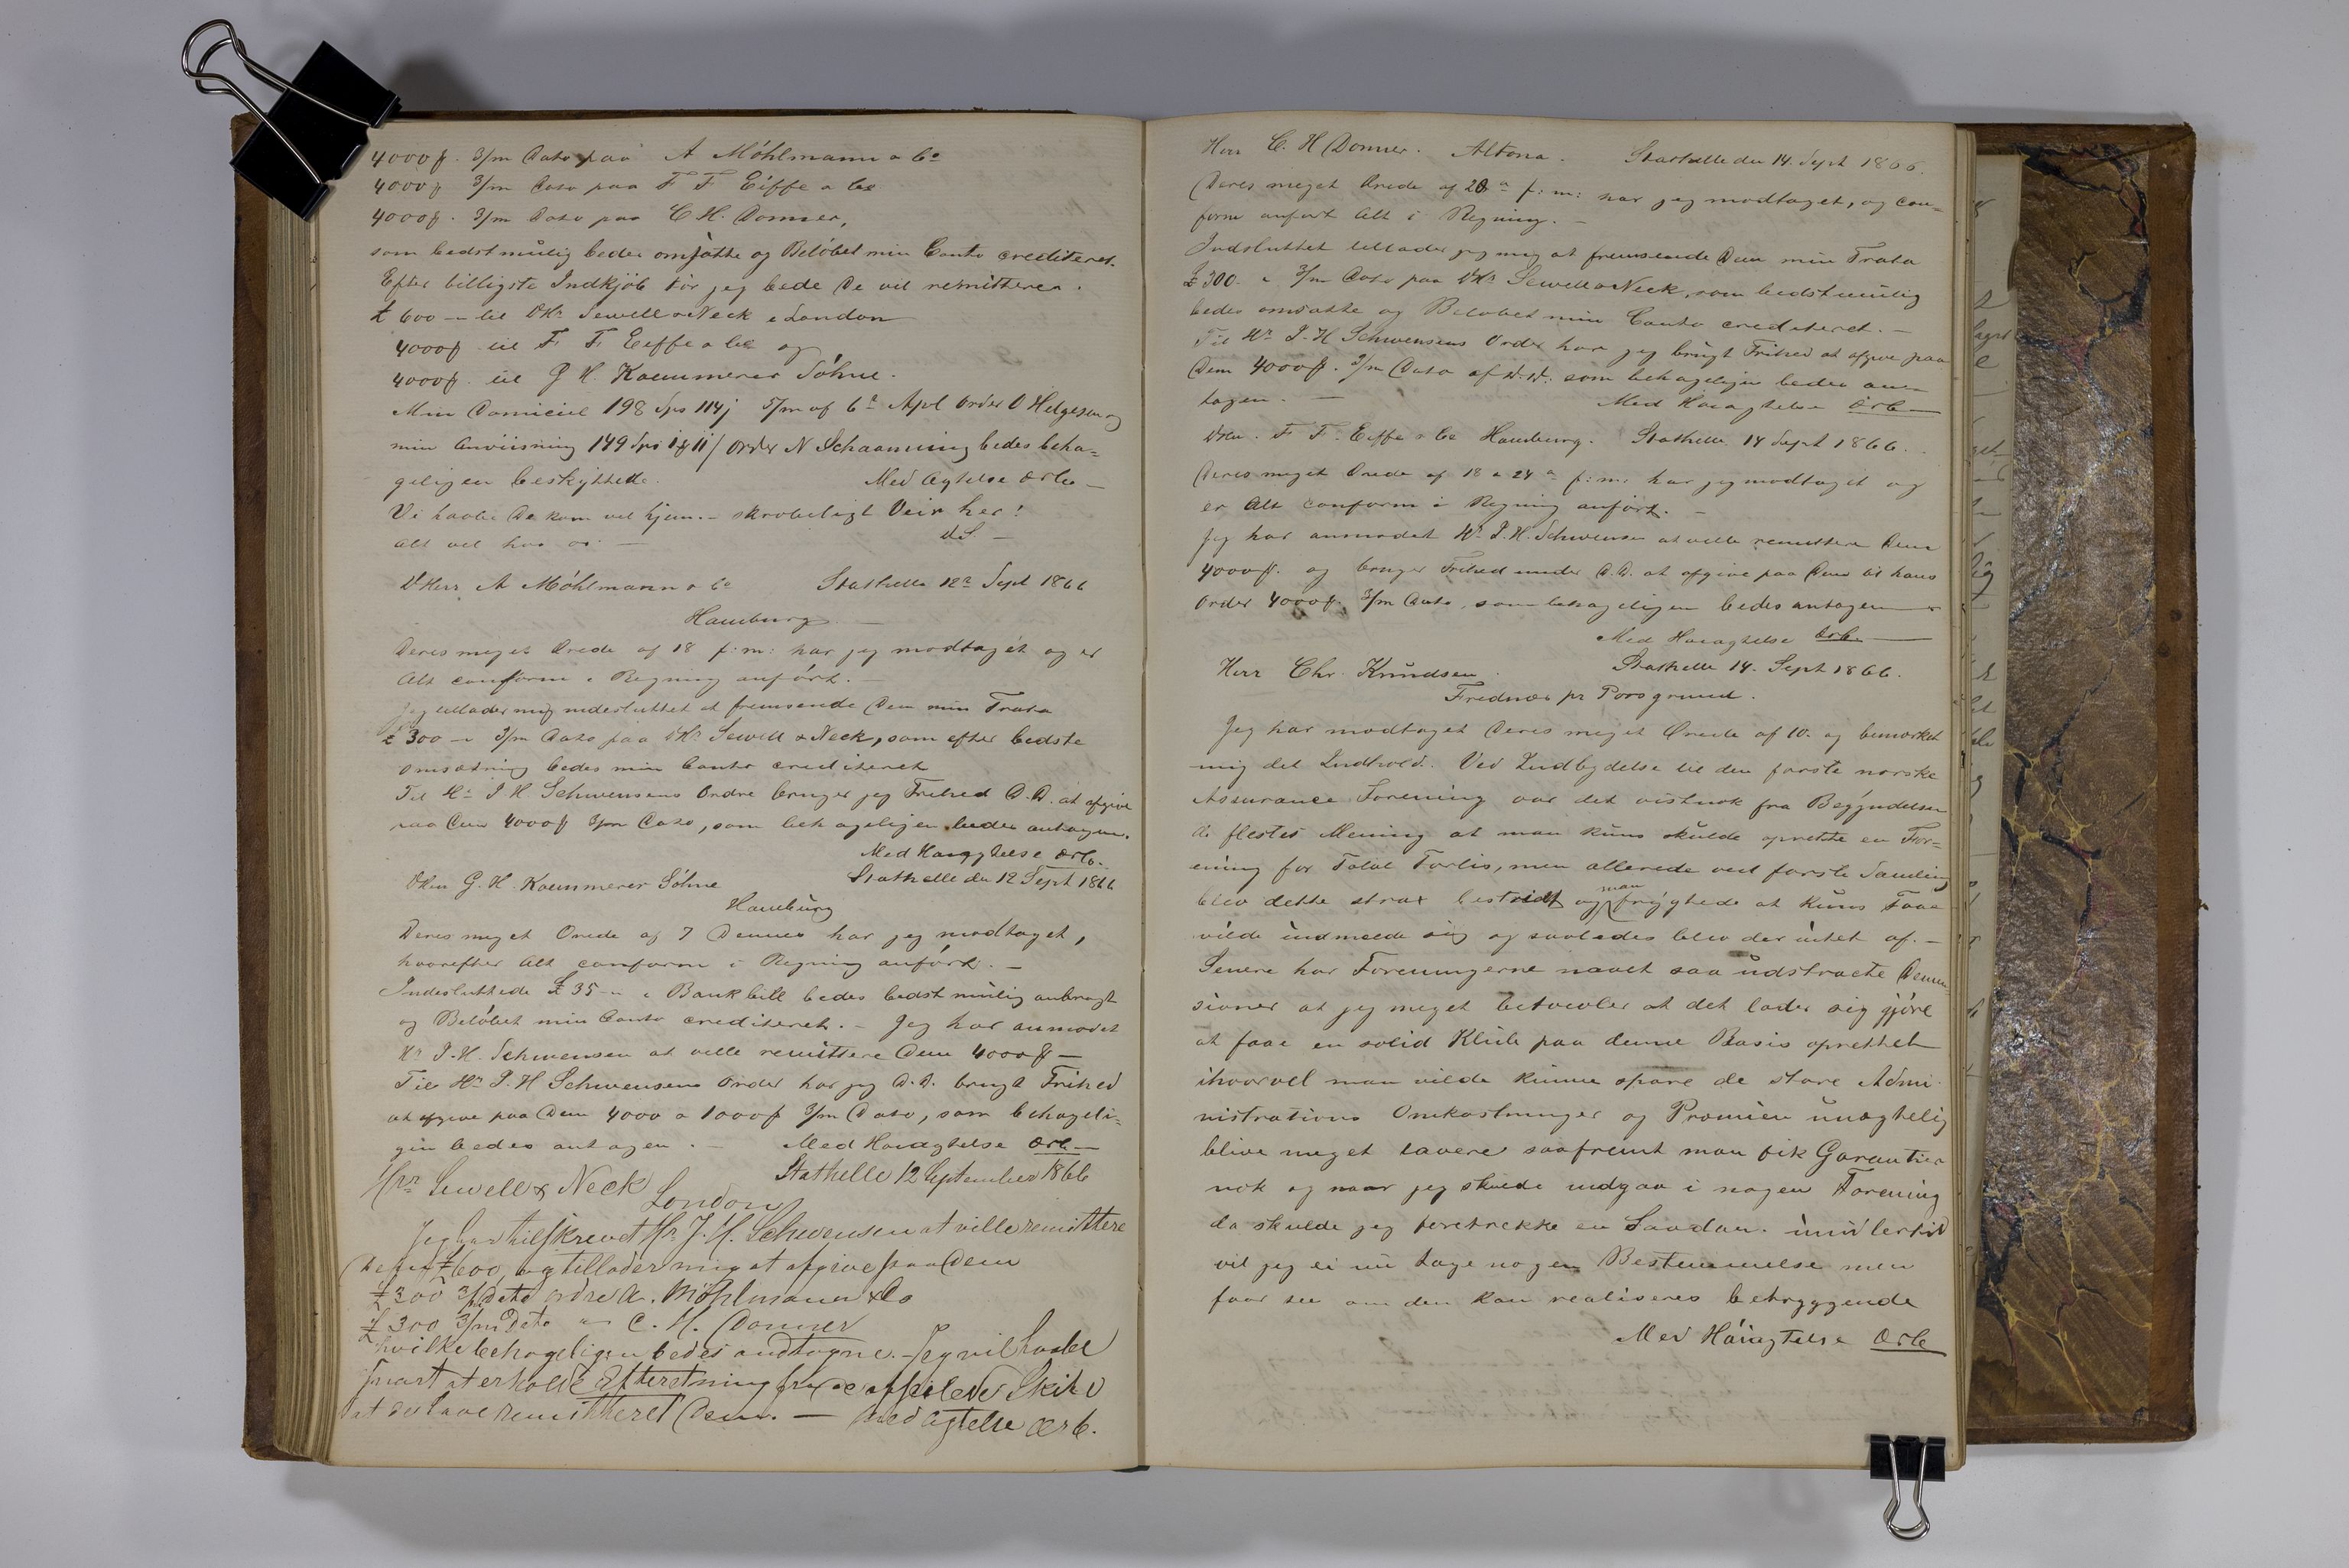 4000ƒ. 3/m Dato paa A Möhlmann & Co
4000ƒ 3/m Dato paa F F Eiffe & Co
4000ƒ. 3/m Dato paa C H. Donner,
som bedst mulig bedes omsatte og Belöbet min Conto crediteret.
Efter billigste Indkjöb tör jeg bede De vil remittere.
£ 600 — til DHr. Sewell & Neck i London
4000ƒ til F F Eiffe & Co og
4000ƒ. til G H. Kaemmerer Söhne.
Min Domicil 198 Sps 114j 5/m af 6te Apl Order O Helgesen og
min Anviisning 149 Sps Order N Schaanning bedes beha-
geligen beskyttede. Med Agtelse ærb —
Vi haabe De kom vel hjem. — skrobeligt Veir her!
Alt vel hos os — dS —
DHerr A Möhlmann & Co Stathelle 12te Sept 1866
Hamburg —
Deres meget Ærede af 18 f: m: har jeg modtaget og er
Alt conform i Regning anfört. —
Jeg tillader mig indesluttet at fremsende Dem min Trata
£ 300 — 3/m Dato paa DHr Sewell & Neck, som efter bedste
Omsætning bedes min Conto crediteret
Til Hr J H Schwensens Ordre bruger jeg Frihed D.D. at afgive
paa Dem 4000ƒ 3/m Dato, som behageligen bedes antagen.
Med Høiagtelse ærb.
DHrr G. H. Kaemmerer Söhne Stathelle den 12 Sept 1866
Hamburg
Deres meget Ærede af 7 Dennes har jeg modtaget,
hvorefter Alt conform i Regning anfört. —
Indesluttede £ 35 — i Bankbill bedes bedst mulig anbragt
og Belöbet min Conto crediteret. — Jeg har anmodet
Hr J. H. Schwensen at ville remittere Dem 4000ƒ —
Til Hr J. H Schwensens Order har jeg D.D. brugt Frihed
at afgive paa Dem 4000 a 1000ƒ 3/m Dato, som behageli-
gen bedes antagen. — Med Høiagtelse ærb —
Hrr Sewell & Neck Stathelle 12 September 1866
London
Jeg har tilskrevet Hr J. H. Schwensen at ville remittere
Dem £600, og tillader mig at afgive paa Dem
£ 300 3/m Dato ordre A. Möhlmann & Co
£ 300 3/m Dato — C. H. Donner
hvilke behageligen bedes andtagne. — Jeg vil haabe
snart at erholde Efterretning fra de afseilede Skibe
at de have remitteret Dem. — Med Agtelse ærb.
Herr C. H Donner. Altona. Stathelle den 14. Sept 1866.
Deres meget Ærede af 28de f: m: har jeg modtaget, og con-
form anfört Alt i Regning. —
Indsluttet tillader jeg mig at fremsende Dem min Trata
£ 300. — 3/m Dato paa DHr Sewell & Neck, som bedst mulig
bedes omsatte og Belöbet min Conto crediteret. —
Til Hr. J. H Schwensens Order har jeg brugt Frihed at afgive paa
Dem 4000ƒ. 3/m Dato af d.D. som behageligen bedes an-
tagen. — Med Høiagtelse ærb —
DHrr. F F. Eiffe & Co Hamburg. Stathelle 14 Sept 1866.
Deres meget Ærede af 18 & 24de f: m: har jeg modtaget og
er Alt conform i Regning anfört. —
Jeg har anmodet Hr. J. H. Schwensen at ville remittere Dem
4000ƒ. og bruger Frihed under D.D. at afgive paa Dem til hans
Order 4000ƒ. 3/m Dato, som behageligen bedes antagen —
Med Høiagtelse ærb. —
Herr Chr. Knudsen. Stathelle 14. Sept 1866.
Frednæs pr Porsgrund.
Jeg har modtaget Deres meget Ærede af 10. og bemærket
mig det Indhold. Ved Indbydelse til den første norske
Assurance Forening var det vistnok fra Begyndelsen
de flestes Mening at man kuns skulde oprette en For-
ening for Total Forlis, men allerede ved første Samling
blev dette strax bestridt og man frygtede at kuns Faae
vilde indmelde sig og saaledes blev der intet af. —
Senere har Foreningerne naaet saa udstrakte Demen-
sioner at jeg meget betvivler at det lader sig gjöre
at faae en solid Klub paa denne Basis oprettet
ihvorvel man vilde kunne spare de store Admi-
nistrations Omkostninger og Præmien unægtelig
blive meget lavere saafremt man fik Garantier
nok og naar jeg skulde indgaa i nogen Forening
da skulde jeg foretrække en Saadan. imidlertid
vil jeg ei nu tage nogen Bestemmelse men
faar see om den kan realiseres betryggende
Med Høiagtelse ærb